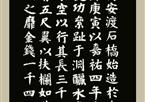 安渡石橋始造於
庚寅以嘉祐四年
功絫趾于淵釃水
空以行其長三千
尺翼以扶欄如其
之靡金錢一千四